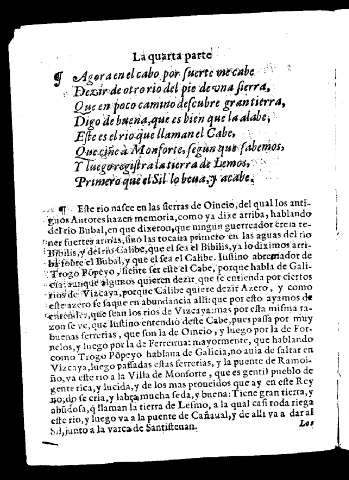 La quarta parte
¶ Agora en el cabo por suerte me cabe
Dezir de otro rio del pie de vna sierra,
Que en poco camino descubre gran tierra,
Digo de buena, que es bien que la alabe,
Este es el rio que llaman el Cabe,
Que ciñe à Monforte, segun que sabemos,
Y luego registra la tierra de Lemos,
Primero que el Sil lo beua, y acabe.
¶ Este rio nasce en las sierras de Oincio, del qual los anti-
guos Autores hazen memoria, como ya dixe arriba, hablando
del rio Bubal, en que dixeron, que ningun guerreador creia te-
ner fuertes armas, sino las tocaua primero en las aguas del rio
Bibilis, y del rio Calibe, que el sea el Bibilis, ya lo diximos arri-
ba sobre el Bubal, y que el sea el Calibe. Iustino abreuiador de
Trogo Põpeyo, siente ser este el Cabe, porque habla de Gali-
cia: aunque algunos quieren dezir, que se entienda por ciertos
rios de Vizcaya, porque Calibe quiere dezir Azero, y como
este azero se saque en abundancia alli: que por esto ayamos de
entender, que sean los rios de Vizcaya: mas por esta misma ra-
zon se ve, que Iustino entendiò deste Cabe, pues passa por muy
buenas ferrerias, que son la de Oincio, y luego por la de For-
nelos, y luego por la de Ferreirua: mayormente, que hablando
como Trogo Põpeyo hablaua de Galicia, no auia de saltar en
Vizcaya, luego passadas estas ferrerias, y la puente de Ramoi-
ño, va este rio a la Villa de Monforte, que es gentil pueblo de
gente rica, y lucida, y de los mas proueidos que ay en este Rey
no, do se cria, y labra mucha seda, y buena: Tiene gran tierra, y
abũdosa, q̃ llaman la tierra de Lesmo, a la qual casi toda riega
este rio, y luego va a la puente de Cañaual, y de alli va a dar al
Sil, junto a la varca de Santisteuan.
Los